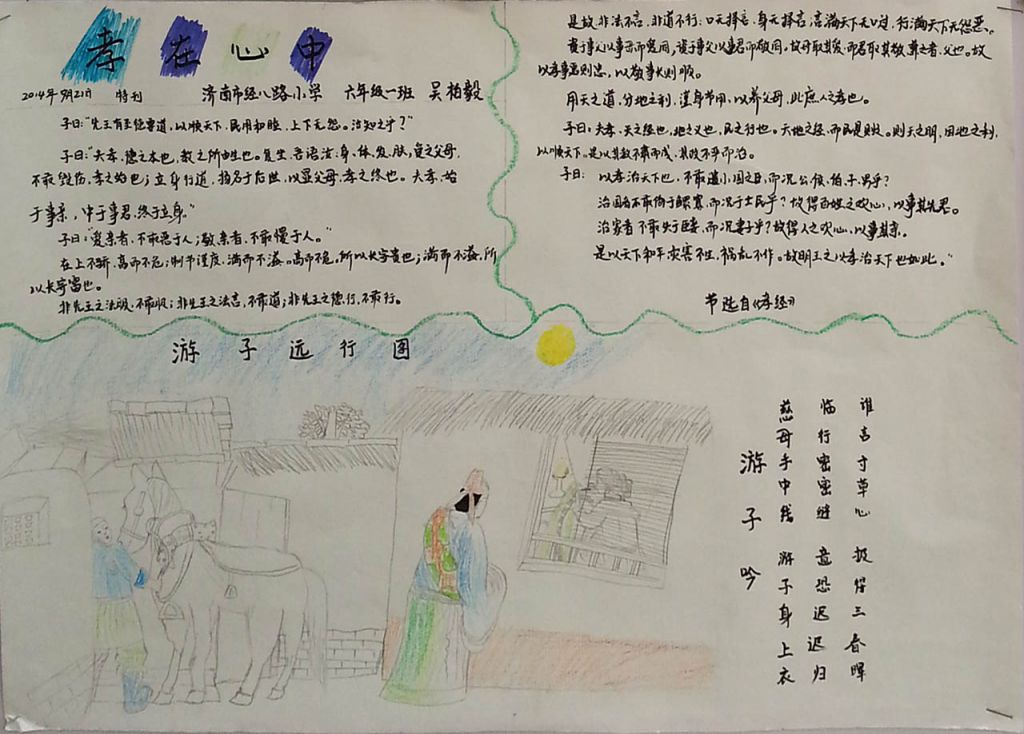 孝在心中
2014年9月21日 特刊 济南市经八路小学 六年级一班 吴柏毅
子曰:“先王有至德要道,以顺天下,民用和睦,上下无怨。汝知之乎?”
子曰:“夫孝,德之本也,教之所由生也。复坐,吾语汝:身、体、发、肤,受之父母,
不敢毁伤,孝之始也;立身行道,扬名于后世,以显父母,孝之终也。夫孝,始
于事亲,中于事君,终于立身。”
子曰:“爱亲者,不敢恶于人;敬亲者,不敢慢于人。”
在上不骄,高而不危;制节谨度,满而不溢。高而不危,所以长守贵也;满而不溢,所
以长守富也。
非先王之法服,不敢服;非先王之法言,不敢道;非先王之德行,不敢行。
是故,非法不言,非道不行;口无择言,身无择言,言满天下无口过,行满天下无怨恶。
资于事父以事母而爱同,资于事父以事君而敬同,故母取其爱,而君取其敬,兼之者,父也。故
以孝事君则忠,以敬事长则顺。
用天之道,分地之利,谨身节用,以养父母,此庶人之孝也。
子曰:夫孝,天之经也,地之义也,民之行也。天地之经,而民是则之。则天之明,因地之利,
以顺天下。是以其教不肃而成,其政不严而治。
子曰: 以孝治天下也,不敢遗小国之臣,而况公、侯、伯、子、男乎?
治国者不敢侮于鳏寡,而况于士民乎?故得百姓之欢心,以事其先君。
治家者不敢失于臣妾,而况妻子乎?故得人之欢心,以事其亲。
是以天下和平,灾害不生,祸乱不作。故明王之以孝治天下也如此。”
节选自《孝经》
游子远行图
游子吟
慈母手中线 游子身上衣
临行密密缝 意恐迟迟归
谁言寸草心 报得三春晖